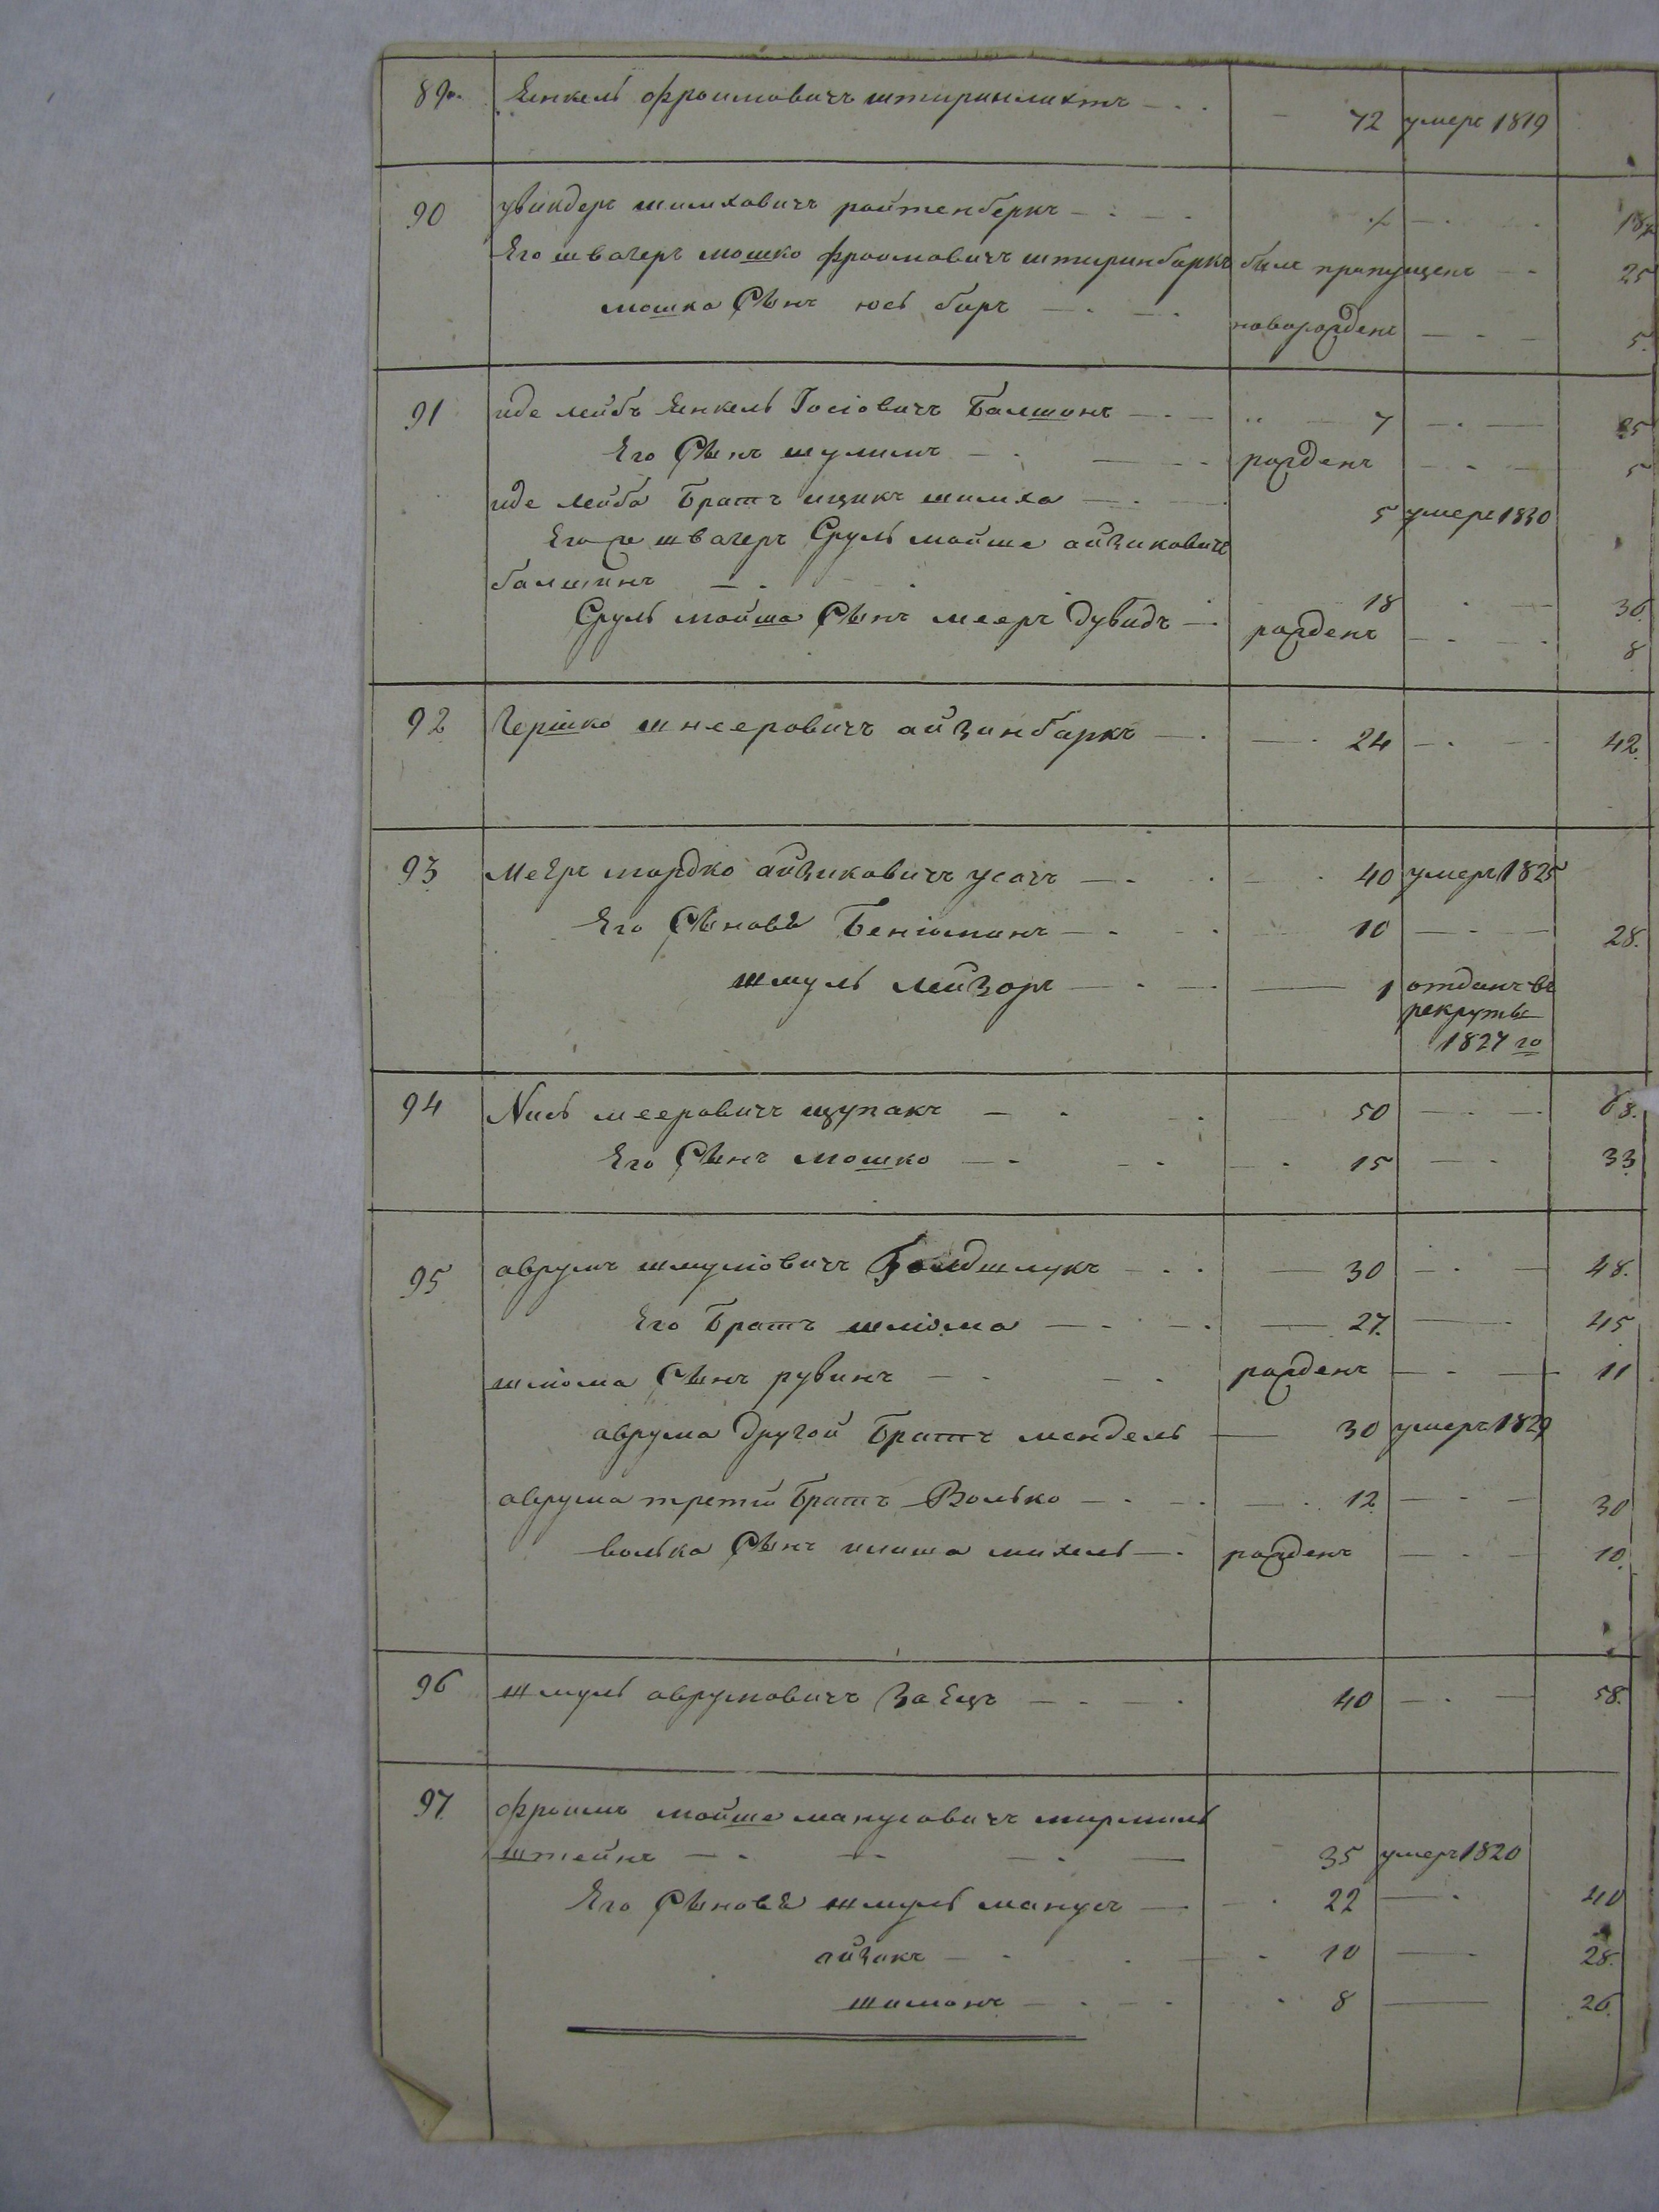 89. Янкель Фроимовичъ штиринлихтъ 72 умеръ 1819
90 шмиховичъ ройтенберкъ
Его швагеръ мошко фроимовичъ штиринбаркъ былъ пропущенъ 25
мошка Сынъ юсь беръ новорожденъ 5.
91 иде лейбъ Янкель Іосіовичъ Балшинъ 7 25
Его Сынъ шулимъ рожденъ 5
иде лейба Братъ ицикъ шмиха 5 умеръ 1830
Его же швагеръ Сруль мойше айзиковичъ
балшинъ 18 36.
Сруль мойша Сынъ мееръ дувидъ рожденъ 8
92 Гершко шнееровичъ айзинбаркъ 24 42.
93 мееръ мордко айзиковичъ усачъ 40 умеръ 1825
Его Сыновя Беніоминъ 10 28.
шмуль лейзоръ 1 отданъ въ
рекруты
1827 го
94 Nись мееровичъ щупакъ 50 68.
Его Сынъ мошко 15 33
95 аврумъ шмуліовичъ 30 48.
Его Братъ шліома 27. 45
шліома Сынъ рувинъ рожденъ 11
аврума другой Братъ мендель 30 умеръ 1829
аврума третій Братъ Волько 12 30
волька Сынъ михель рожденъ 10.
96 шмуль аврумовичъ Заецъ 40 58.
97. фроимъ мойше манусовичъ мирмиль
штейнъ 35 умеръ 1820
Его Сыновя шмуль манусъ 22 40
айзикъ 10 28.
шимонъ 8 26.